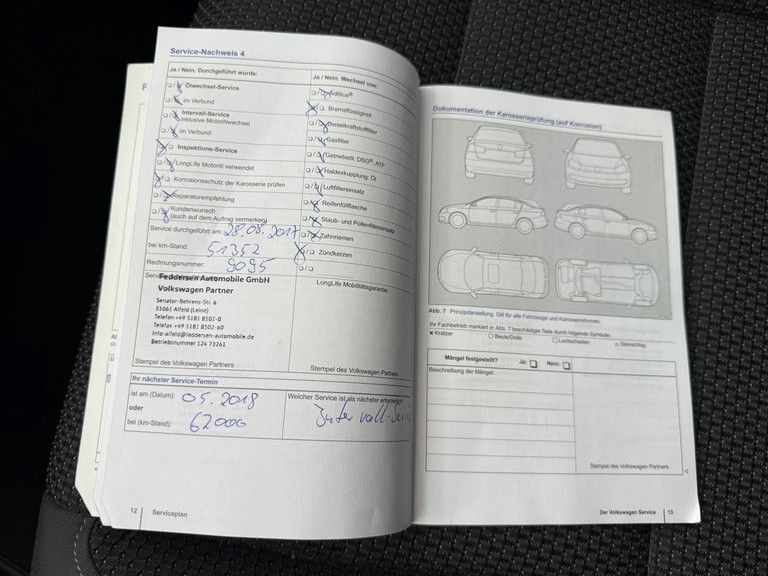 Service-Nachweis 4
Ja / Nein. Durchgeführt wurde:
Ölwechsel-Service
im Verbund
Intervall-Service
inklusive Motorölwechsel
im Verbund
Inspektions-Service
LongLife Motoröl verwendet
Korrosionsschutz der Karosserie prüfen
Reparaturempfehlung
Kundenwunsch
(auch auf dem Auftrag vermerken)
Service durchgeführt am: 28.08.2017
bei km-Stand: 51352
Rechnungsnummer: 9095
Feddersen Automobile GmbH
Volkswagen Partner
Senator-Behrens-Str. 6
31061 Alfeld (Leine)
Telefon +49 5181 8502-0
Telefax +49 5181 8502-60
info-alfeld@feddersen-automobile.de
Betriebsnummer 124 73261
Stempel des Volkswagen Partners
Ja / Nein. Wechsel von:
AdBlue®
Bremsflüssigkeit
Dieselkraftstofffilter
Gasfilter
Getriebeöl: DSG®, ATF
Haldexkupplung, Öl
Luftfiltereinsatz
Reifenfüllflasche
Staub- und Pollenfiltereinsatz
Zahnriemen
Zündkerzen
LongLife Mobilitätsgarantie:
Stempel des Volkswagen Partners
Ihr nächster Service-Termin
ist am (Datum): 05.2018
oder
bei (km-Stand): 62000
Welcher Service ist als nächster erforderlich?
12 Serviceplan
Dokumentation der Karosserieprüfung (auf Korrosion)
Abb. 7 Prinzipdarstellung. Gilt für alle Fahrzeuge und Karosserieformen.
Ihr Fachbetrieb markiert in Abb. 7 beschädigte Teile durch folgende Symbole:
x Kratzer ○ Beule/Delle □ Lackschaden △ Steinschlag
Mängel festgestellt? Ja: Nein:
Beschreibung der Mängel:
Stempel des Volkswagen Partners
Der Volkswagen Service 13